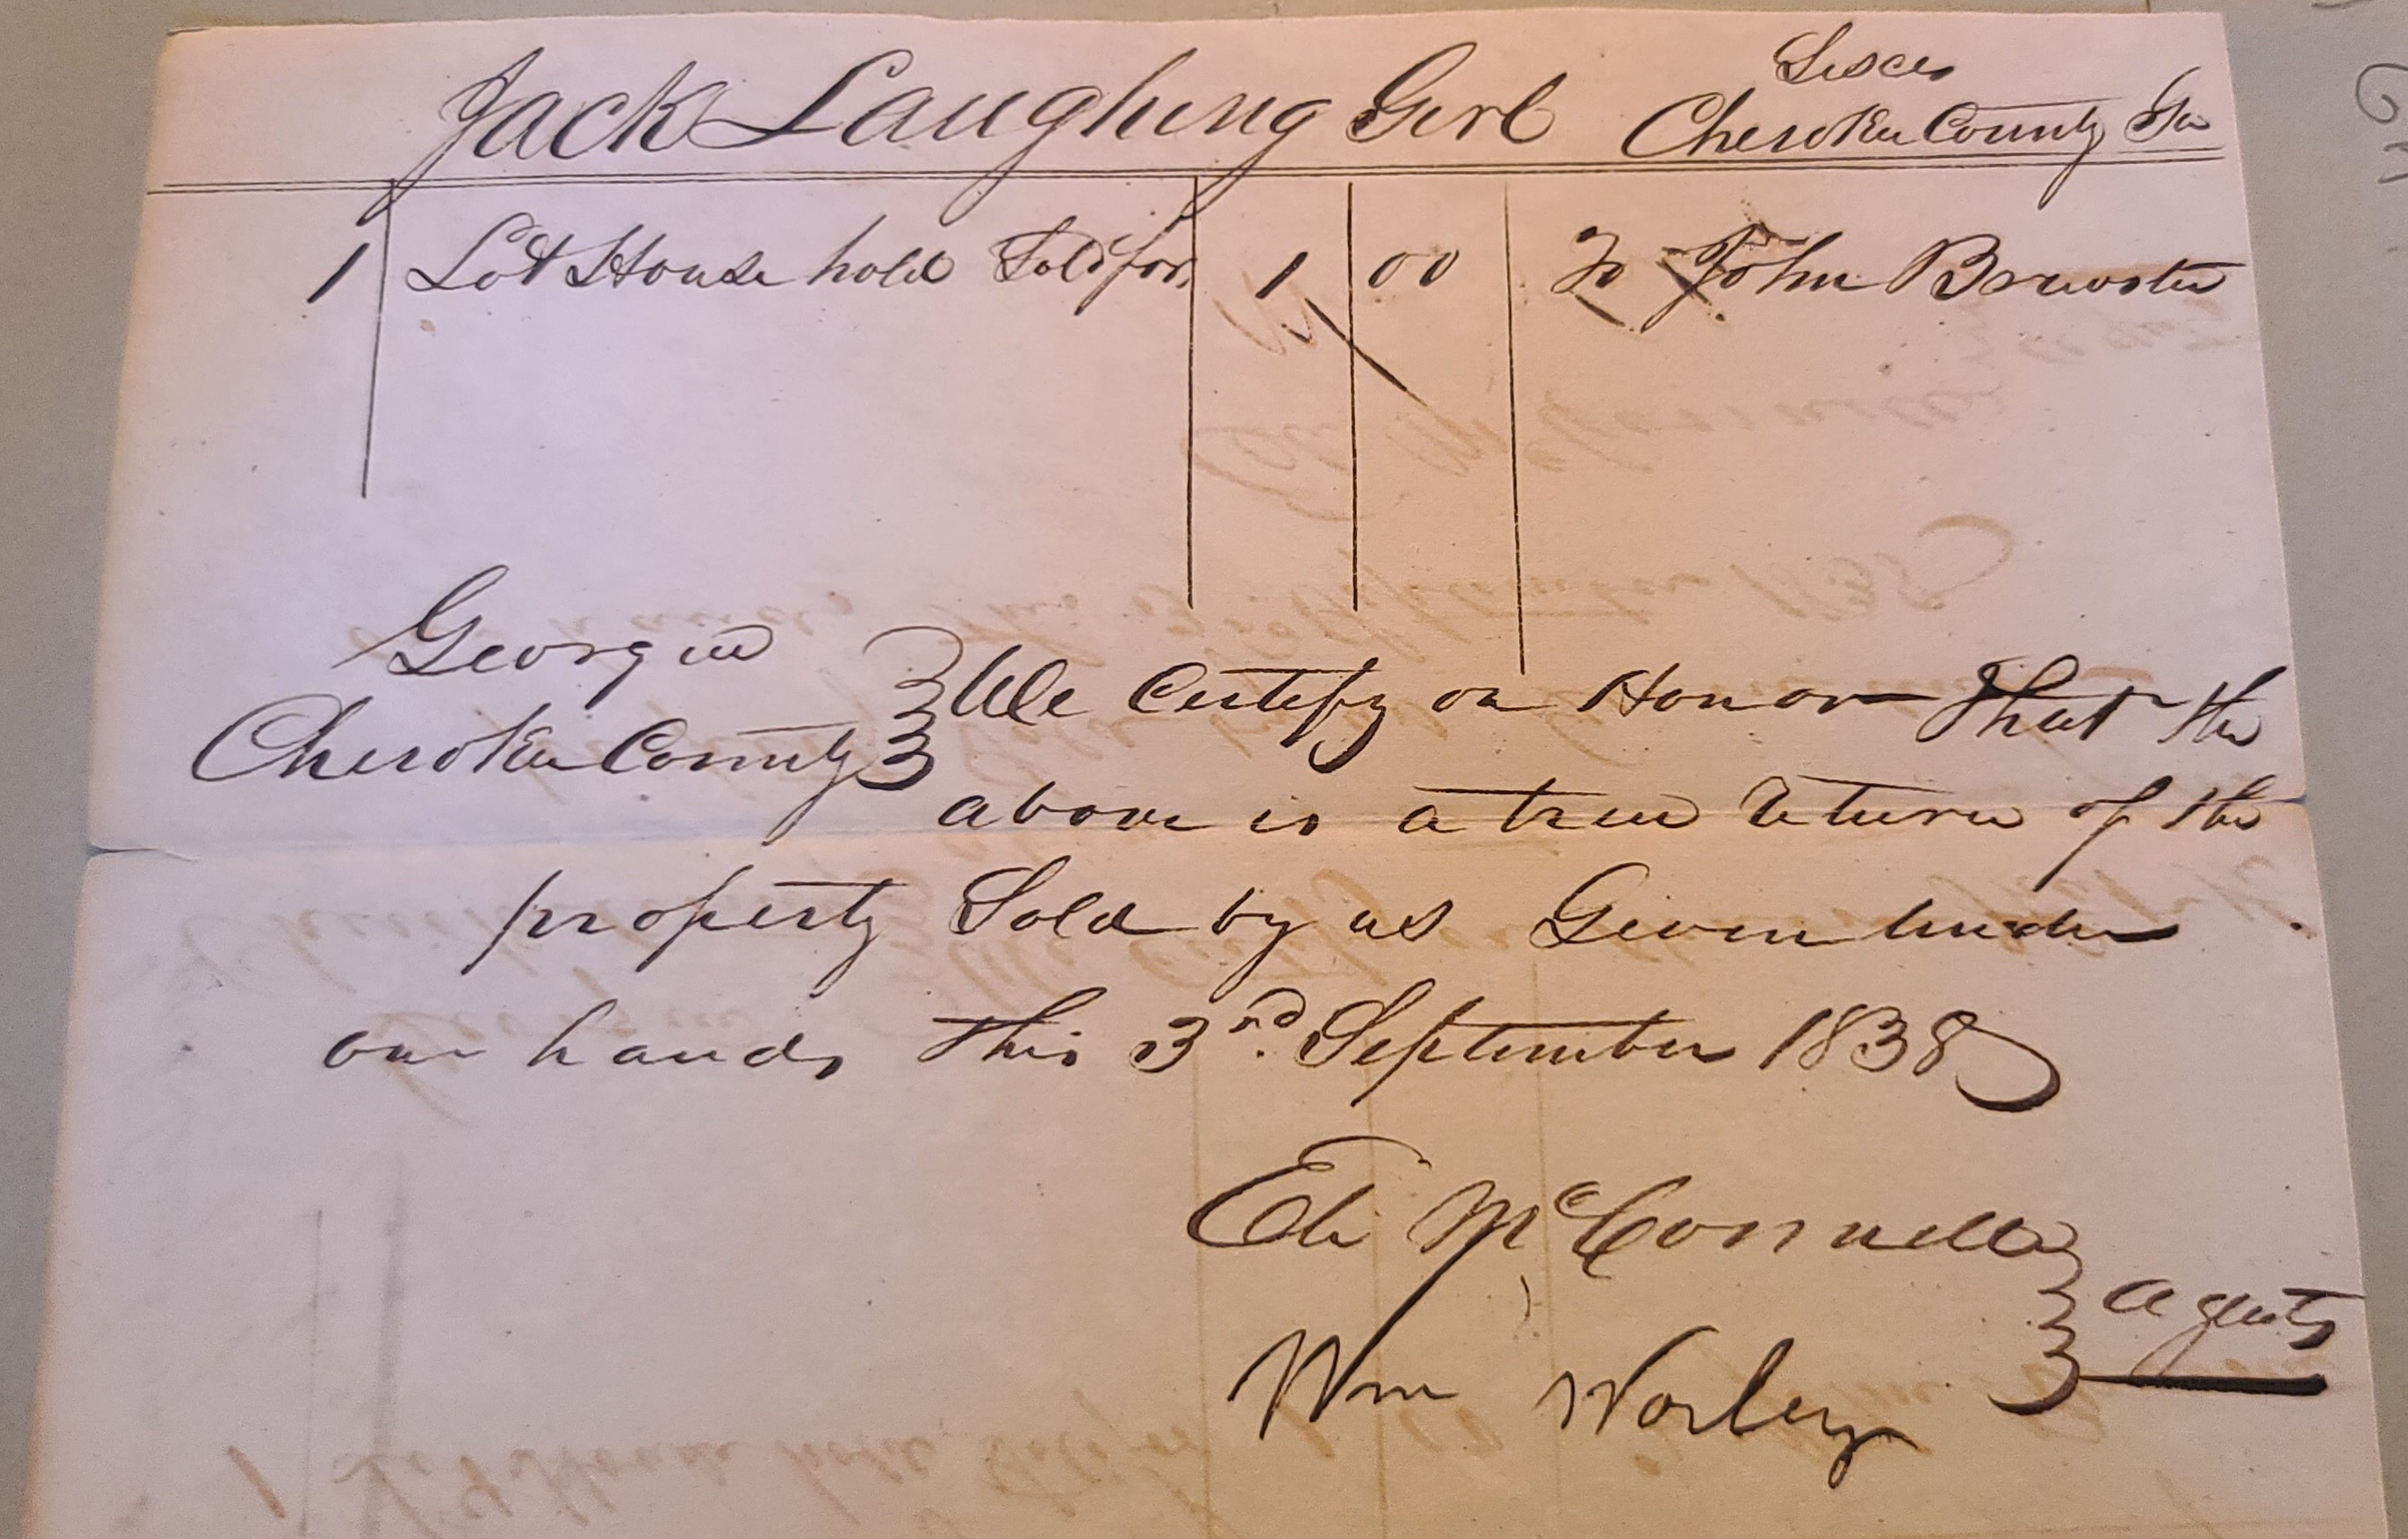 Jack Laughing Girl
Cherokee County Ga
1 Lot House hold Sold for 1 00 To John Brewster
Georgia
Cherokee County } We Certify on Honor that the
above is a true Return of the
property Sold by us Given under
our hands this 3rd. September 1838
Eli McConnell
Wm Worley } agents